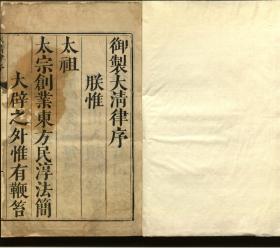 御製大清律序
朕惟
太祖
太宗創業東方民淳法簡
大辟之外惟有鞭笞